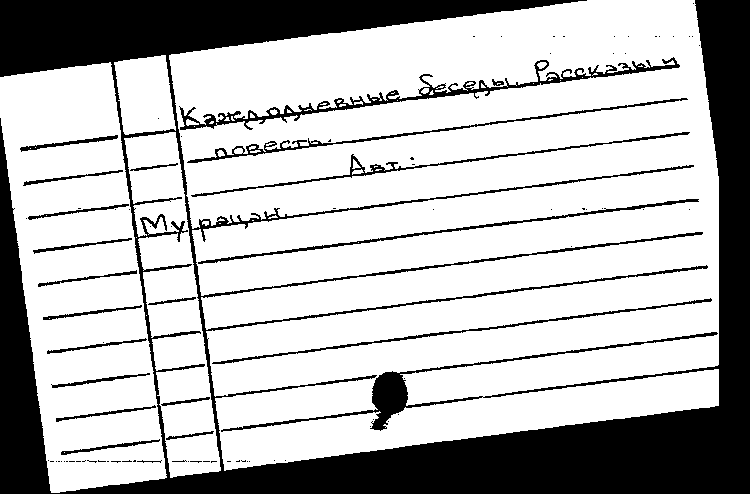 Каждодневные беседы. Рассказы и
повесть.
Авт.:
Мурацан.